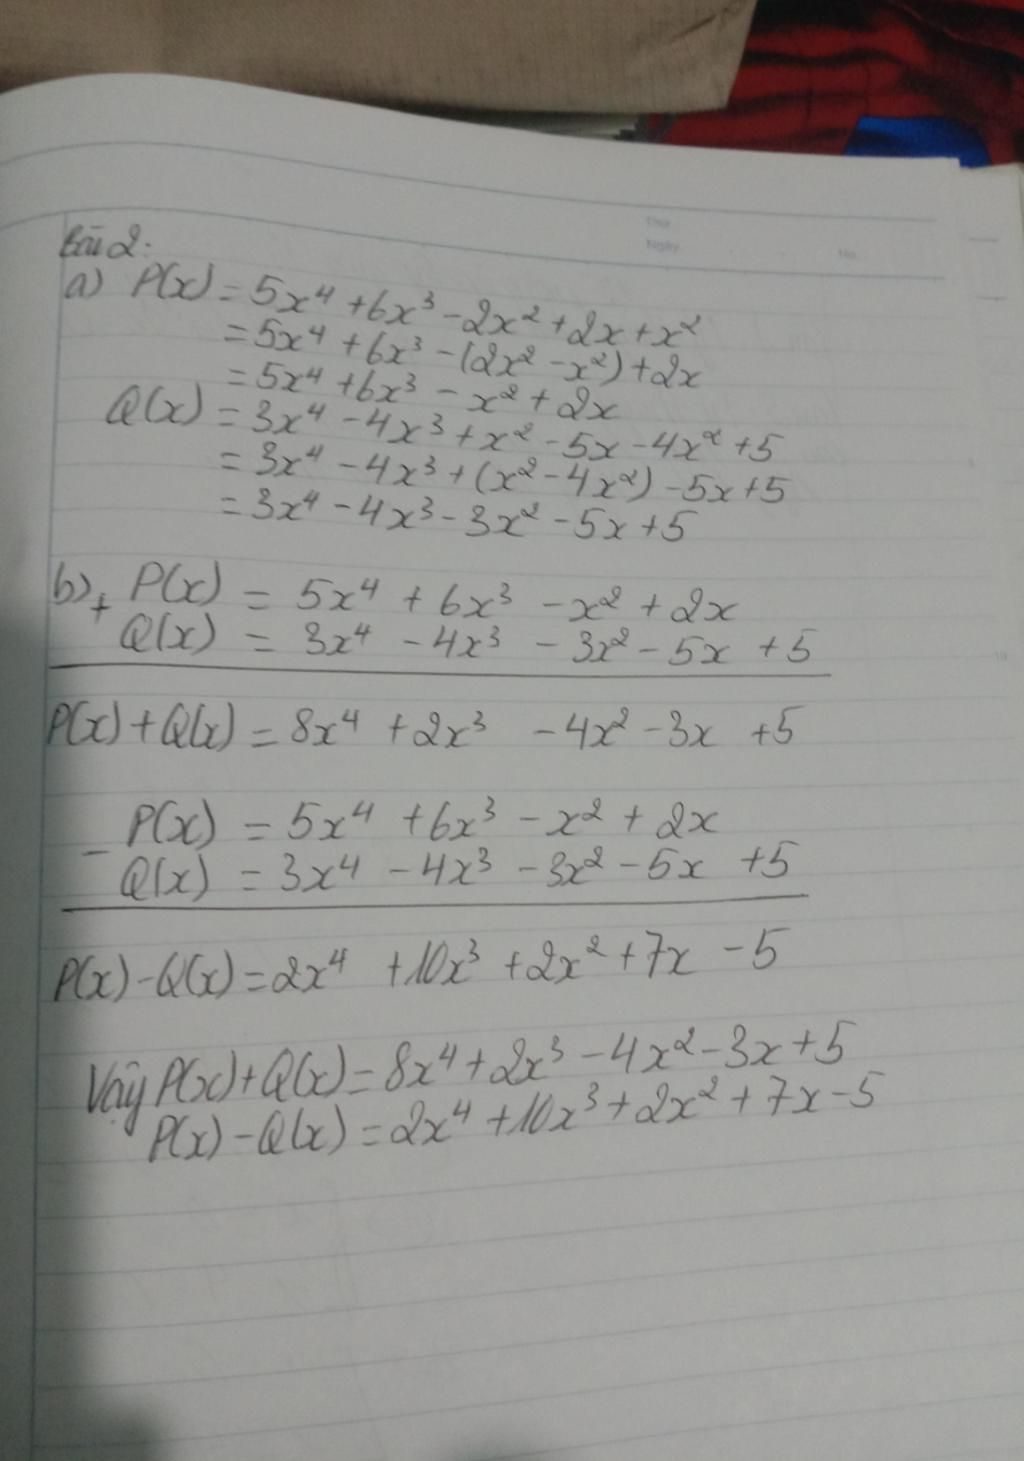 Thứ
Ngày
No.
Bài 2:
a) P(x) = 5x⁴ + 6x³ - 2x² + 2x + x²
= 5x⁴ + 6x³ - (2x² - x²) + 2x
= 5x⁴ + 6x³ - x² + 2x
Q(x) = 3x⁴ - 4x³ + x² - 5x - 4x² + 5
= 3x⁴ - 4x³ + (x² - 4x²) - 5x + 5
= 3x⁴ - 4x³ - 3x² - 5x + 5
b) + P(x) = 5x⁴ + 6x³ - x² + 2x
Q(x) = 3x⁴ - 4x³ - 3x² - 5x + 5
P(x) + Q(x) = 8x⁴ + 2x³ - 4x² - 3x + 5
- P(x) = 5x⁴ + 6x³ - x² + 2x
Q(x) = 3x⁴ - 4x³ - 3x² - 5x + 5
P(x) - Q(x) = 2x⁴ + 10x³ + 2x² + 7x - 5
Vậy P(x) + Q(x) = 8x⁴ + 2x³ - 4x² - 3x + 5
P(x) - Q(x) = 2x⁴ + 10x³ + 2x² + 7x - 5